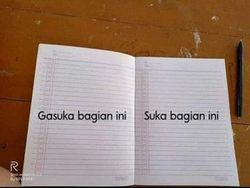 Gasuka bagian ini
Suka bagian ini